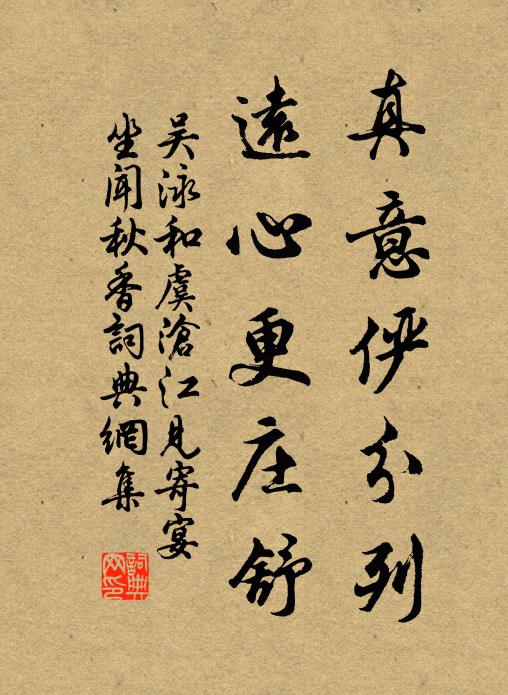 真意俨分列
遠心更庄舒
吴泳和虞滄江見寄宴
坐聞秋香詞典網集
詞典
网印